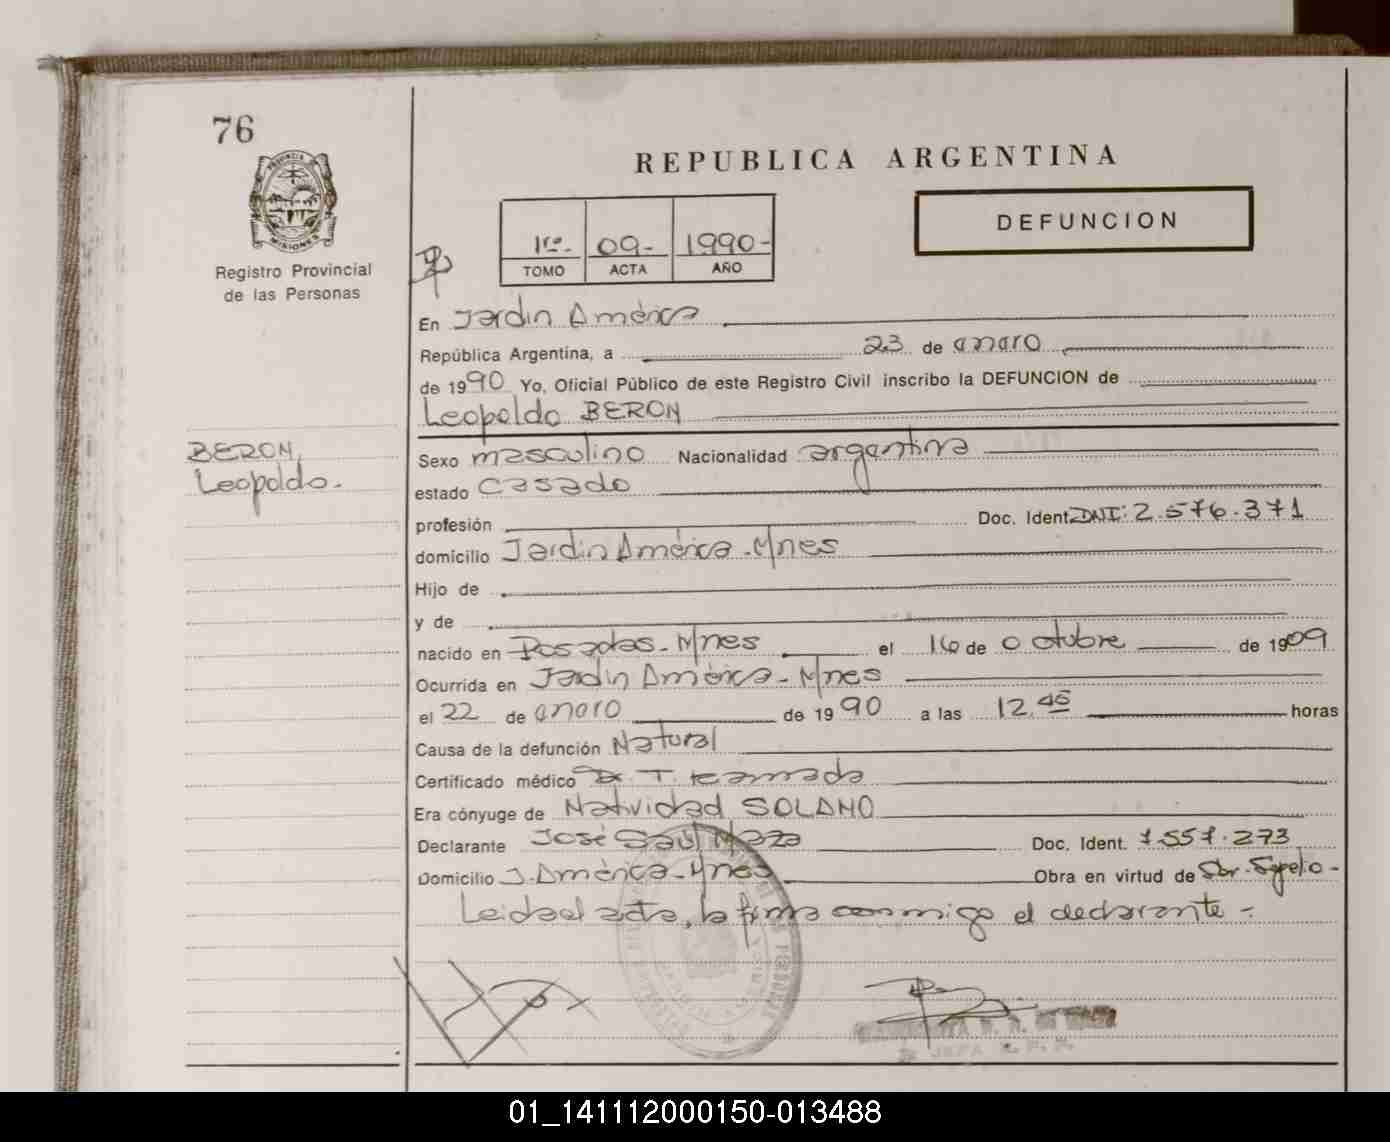 76
PROVINCIA DE MISIONES
Registro Provincial
de las Personas
REPUBLICA ARGENTINA
DEFUNCION
1ro.- 09- 1990-
TOMO ACTA AÑO
En Jardín América
República Argentina, a 23 de enero
de 1990 Yo, Oficial Público de este Registro Civil inscribo la DEFUNCION de
Leopoldo BERON
BERON,
Leopoldo.
Sexo masculino Nacionalidad argentina
estado casado
profesión Doc. Ident. DNI: 2.576.371
domicilio Jardín América - Mnes
Hijo de
y de
nacido en Posadas - Mnes el 16 de Octubre de 1909
Ocurrida en Jardín América - Mnes
el 22 de enero de 1990 a las 12.45 horas
Causa de la defunción Natural
Certificado médico Dr. T.
Era cónyuge de Natividad SOLANO
Declarante José Saúl Maza Doc. Ident. 7.557.273
Domicilio J. América - Mnes Obra en virtud de Ser. Sepelio -
Leída el acta, la firma conmigo el declarante -
01_141112000150-013488